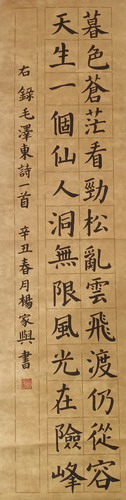 暮色蒼茫看勁松亂雲飛渡仍從容
天生一個仙人洞無限風光在險峰
右錄毛澤東詩一首 辛丑春月楊家興書